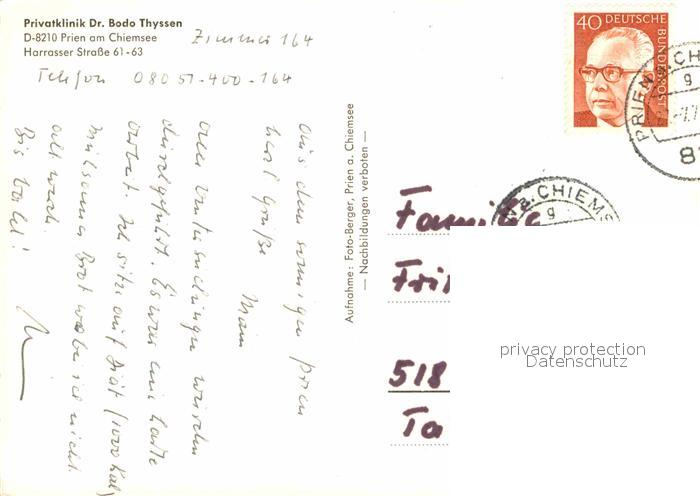 Privatklinik Dr. Bodo Thyssen
D-8210 Prien am Chiemsee
Harrasser Straße 61-63
Zimmer 164
Telefon 08051-400-164
Aus dem sonnigen Prien
herzl. Grüße
alle Untersuchungen wurden
durchgeführt. Es war eine harte
Arbeit. Ich sitze auf Diät (1000 Kal)
Brot habe ich nicht
Bis bald!
Aufnahme: Foto-Berger, Prien a. Chiemsee
— Nachbildungen verboten —
40 DEUTSCHE BUNDESPOST
PRIEN a. CHI
g
a. CHIEMS
g
Familie
518
Ta
privacy protection
Datenschutz